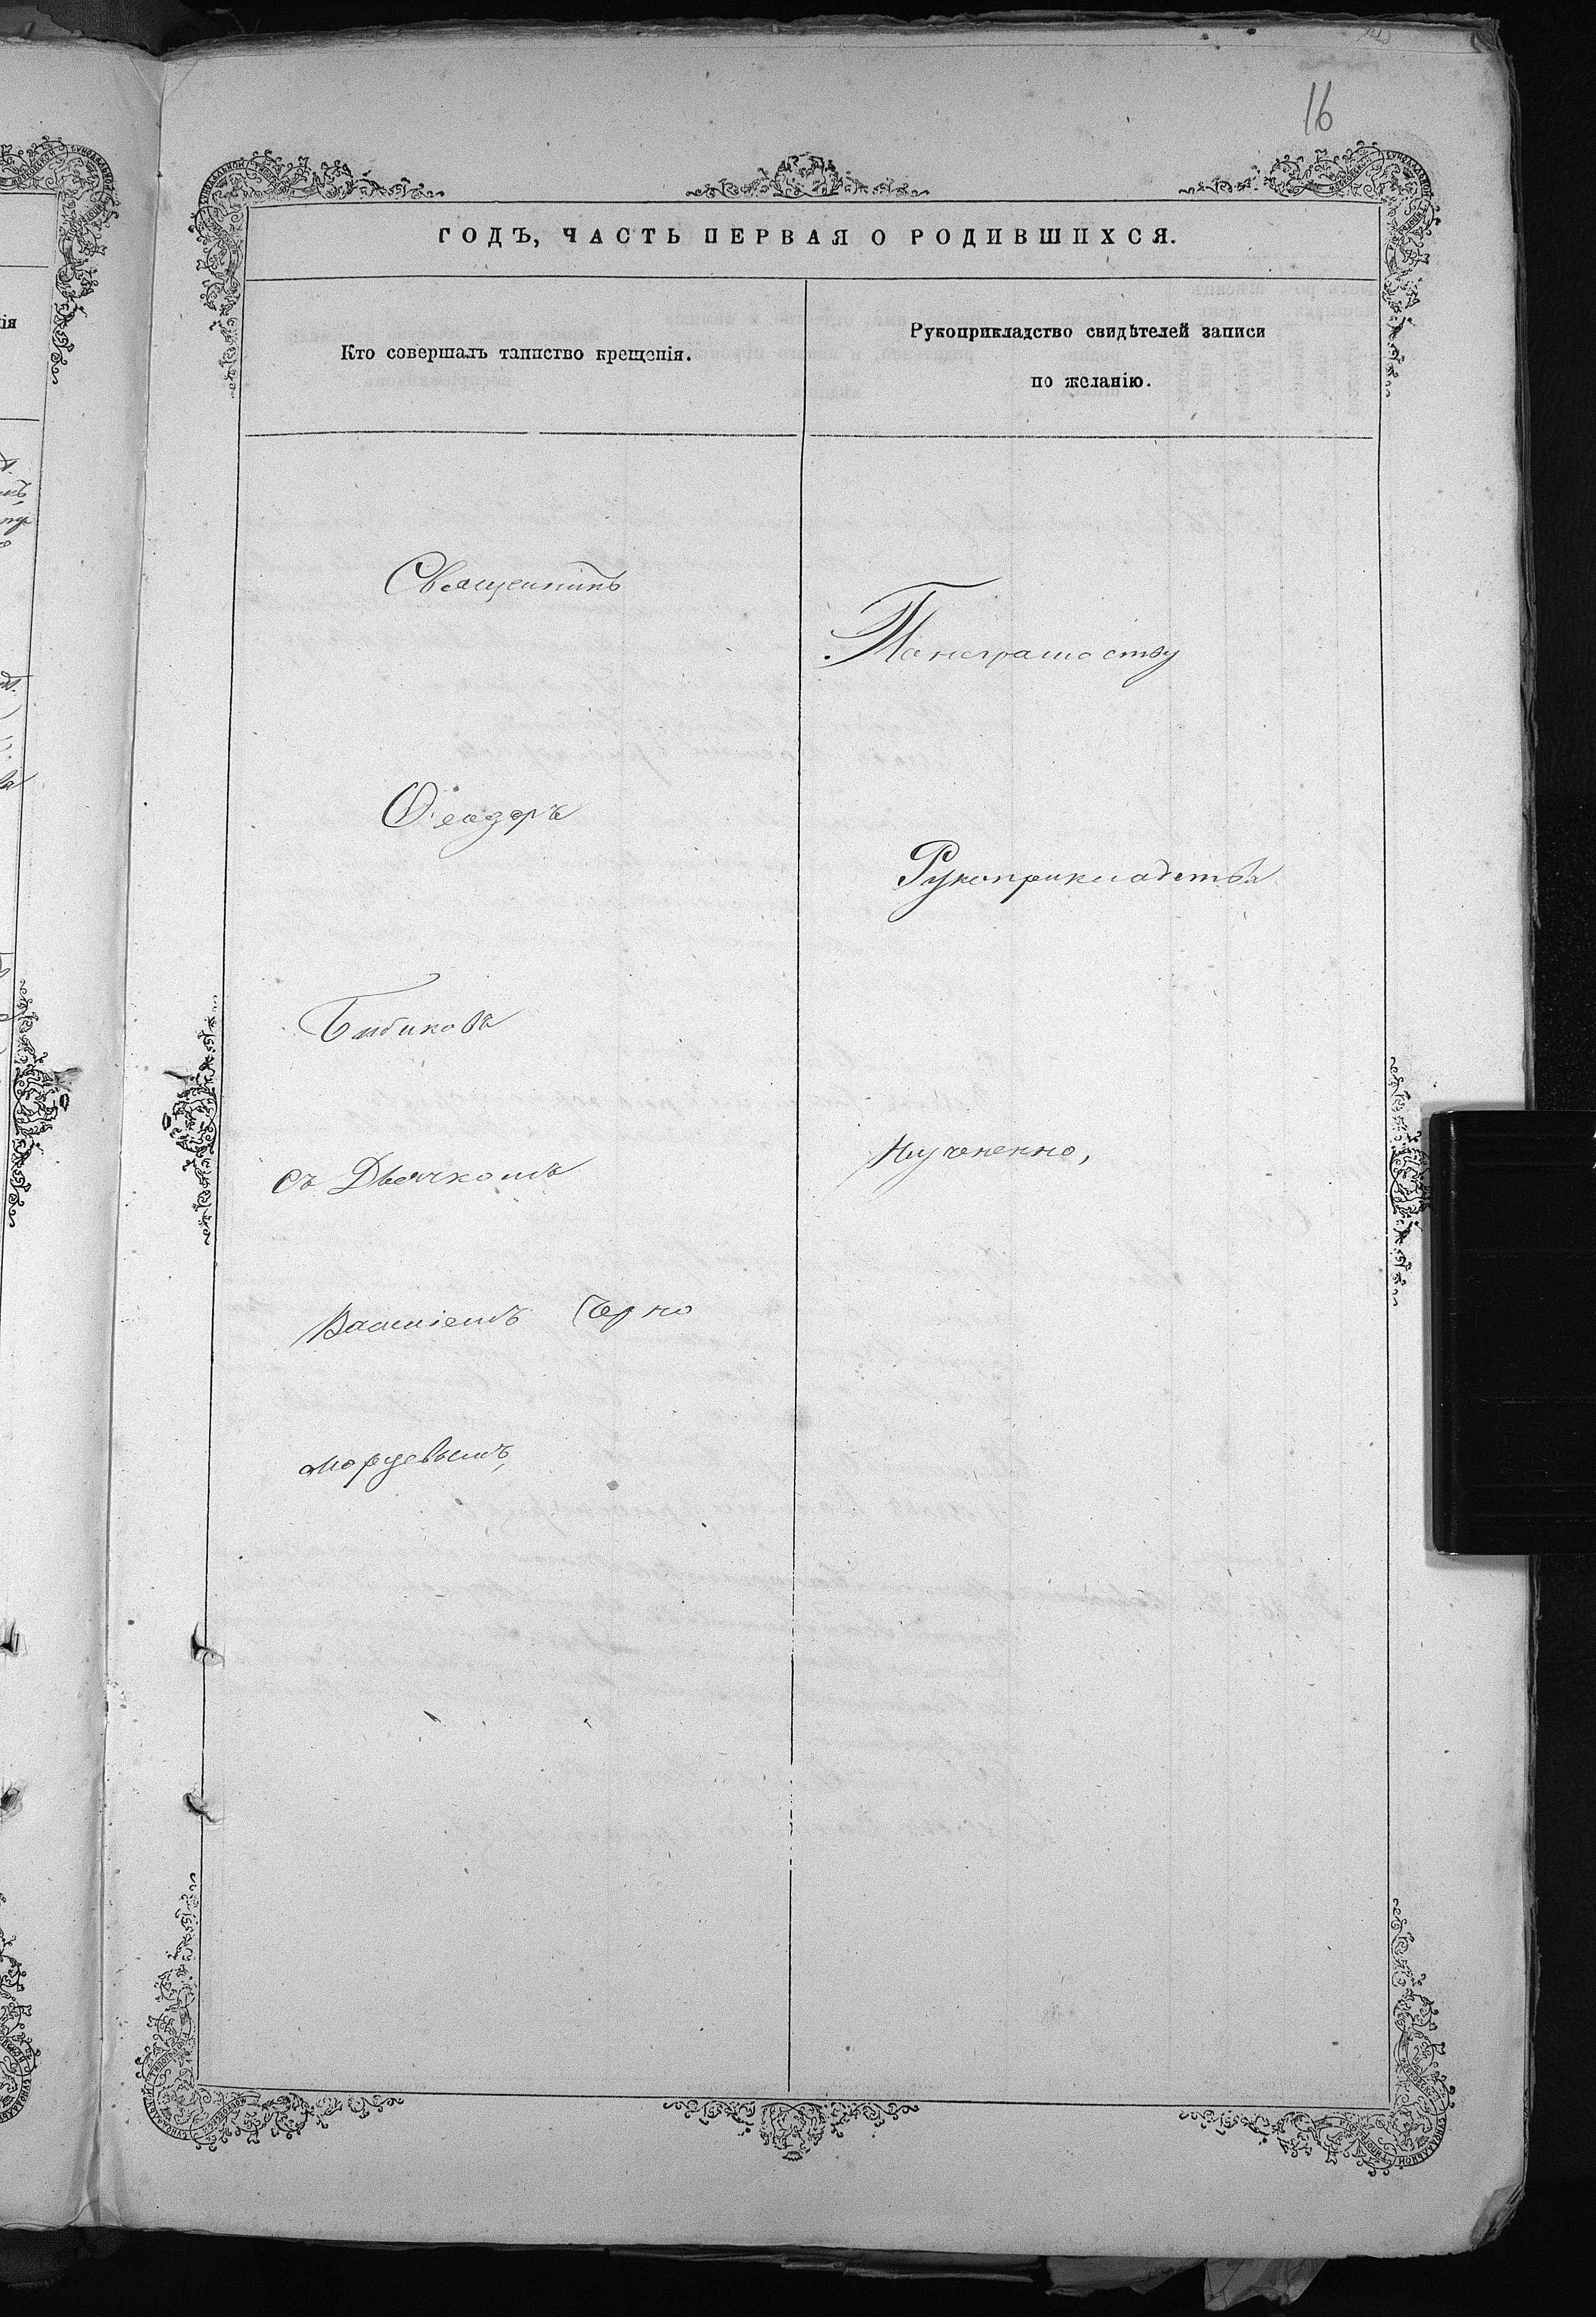 16
ГОДЪ, ЧАСТЬ ПЕРВАЯ О РОДИВШИХСЯ.
Кто совершалъ таинство крещенія.
Рукоприкладство свидѣтелей записи
по желанію.
Священникъ
По неграмотству
Ѳеодоръ
Рукоприкладства
Бибиковъ
съ Дьячкомъ
Василіемъ Черно
морцевымъ,